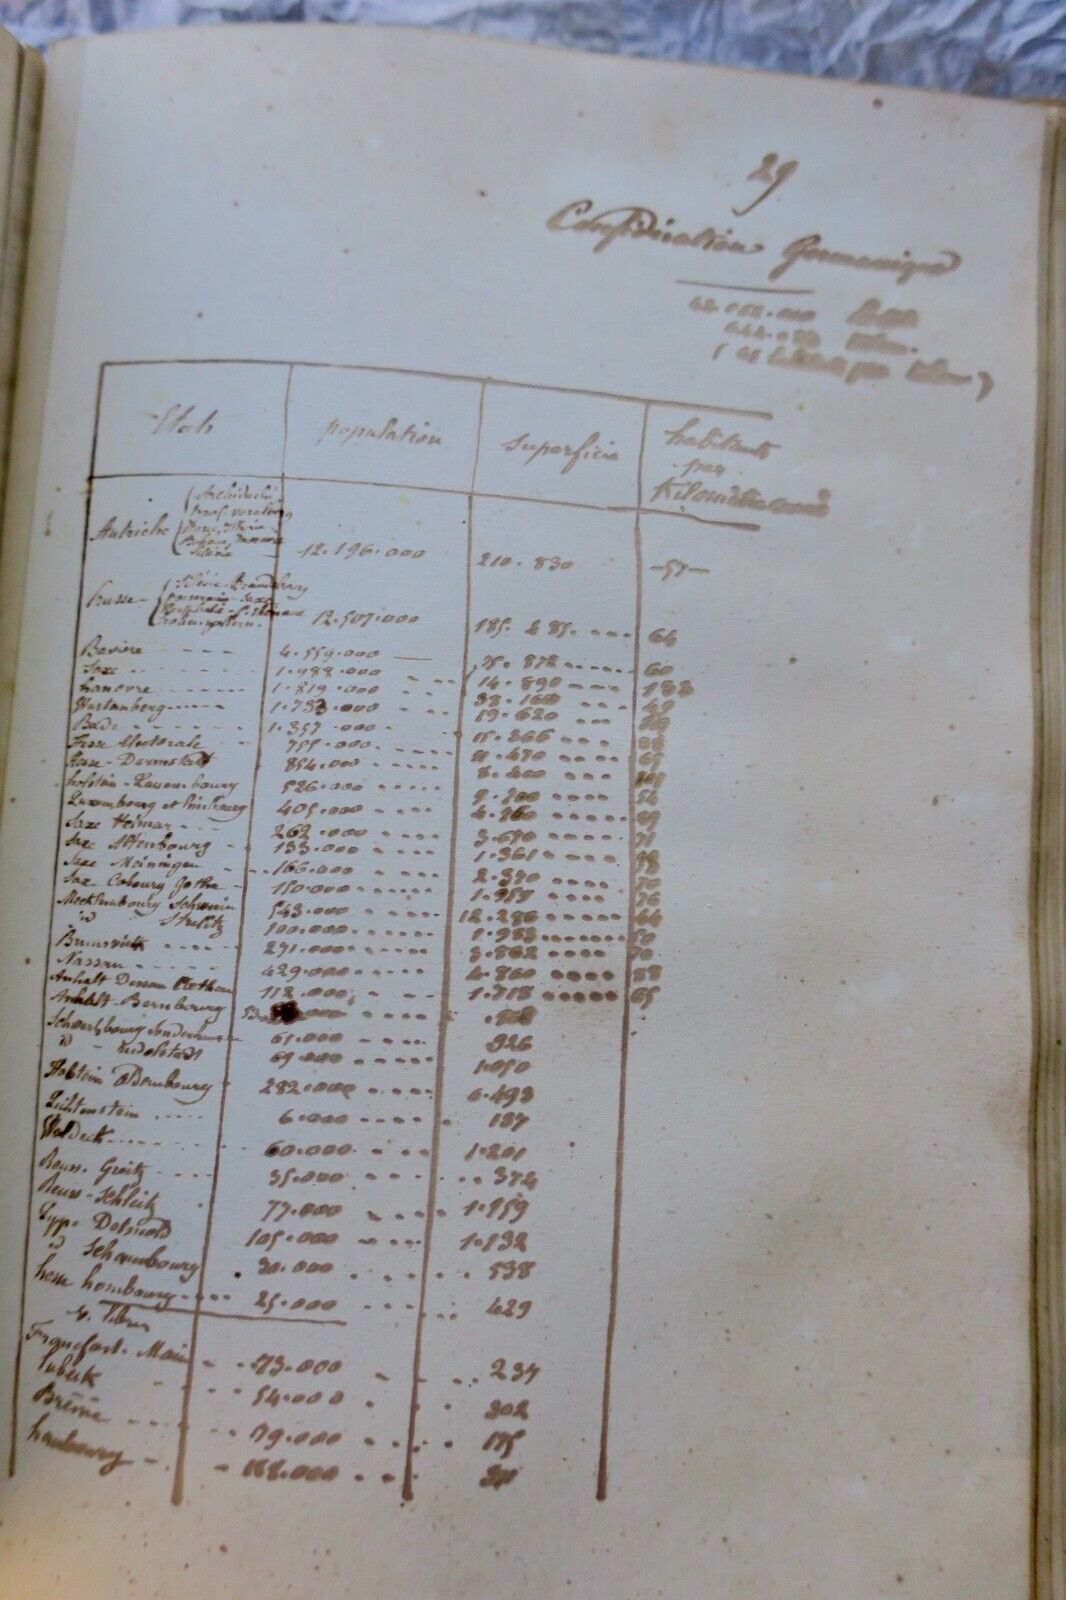 29
Confédération Germanique
42.052.000
(66 habitants par kilom.)
Etats population superficie habitants par Kilomètre carré
Autriche (Archiduché, Tyrol, Voralberg 12.196.000 210.830 —57—
Prusse — (Silésie - Brandbourg 12.507.000 185.485 64
Bavière 4.559.000 — 75.872 60
Saxe 1.988.000 14.890 133
hanovre 1.819.000 38.160 49
Wurtemberg 1.733.000 19.620
Bade 1.357.000 15.266
hesse électorale 755.000 11.470 65
hesse - Darmstadt 854.000 8.400
holstein - Lauenbourg 526.000 9.700 54
Luxembourg et Limbourg 405.000 4.860 89
Saxe Weimar 262.000 3.670 71
Saxe Altenbourg 133.000 1.361 98
Saxe Meiningen 166.000 2.370 70
Saxe Cobourg Gotha 150.000 1.958 76
Mecklembourg Schwerin 543.000 12.286 44
id Strelitz 100.000 1.983 50
Brunswick 271.000 3.862 70
Nassau 429.000 4.860 88
Anhalt Dessau Kothen 112.000 1.718 65
Anhalt - Bernbourg 53. .000
Schwartzbourg Sonderhausen 61.000 926
id - Rudolstadt 69.000 1.050
Holstein Oldenbourg 282.000 6.493
Lichtenstein 6.000 137
Waldeck 60.000 1.201
Reuss. Greitz 35.000 372
Reuss - Schleitz 77.000 1.159
Lippe Detmold 105.000 1.132
id Schaumbourg 30.000 538
hesse hombourg 25.000 429
v. libres
Francfort. Main 73.000 237
Lubeck 54.000 302
Brême 79.000 175
hambourg 188.000